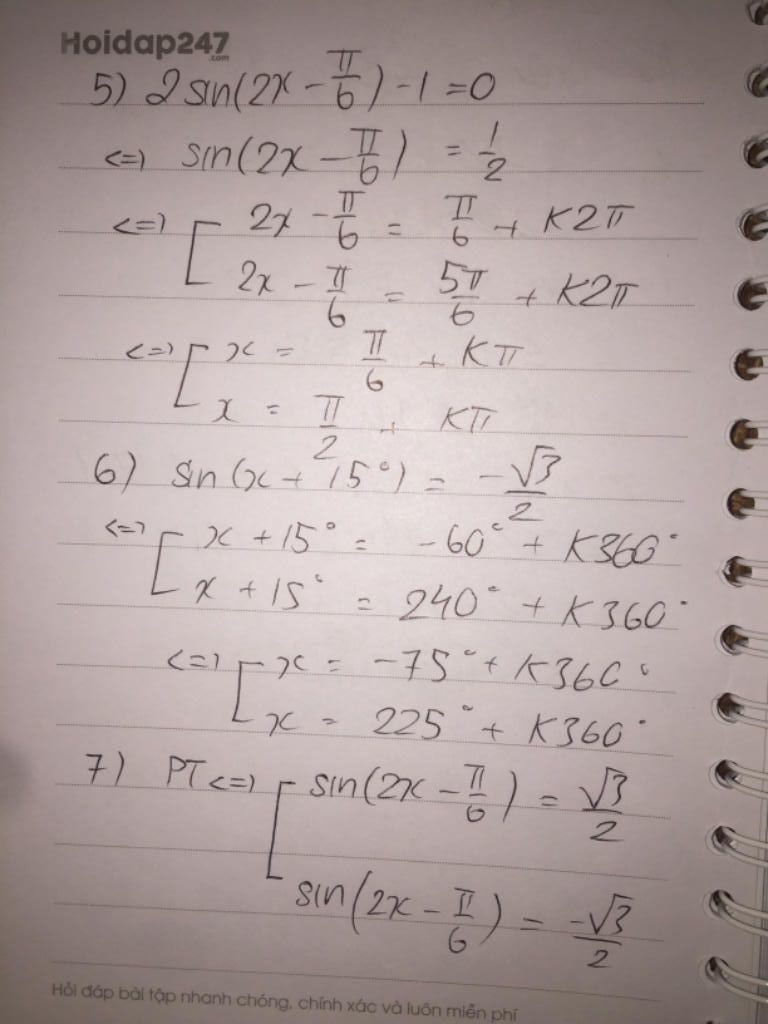 Hoidap247
.com
5) 2sin(2x - π/6) - 1 = 0
<=> sin(2x - π/6) = 1/2
<=> [ 2x - π/6 = π/6 + K2π
2x - π/6 = 5π/6 + K2π
<=> [ x = π/6 + Kπ
x = π/2 + Kπ
6) sin(x + 15°) = -√3/2
<=> [ x + 15° = -60° + K360°
x + 15° = 240° + K360°
<=> [ x = -75° + K360°
x = 225° + K360°
7) PT <=> [ sin(2x - π/6) = √3/2
sin(2x - π/6) = -√3/2
Hỏi đáp bài tập nhanh chóng, chính xác và luôn miễn phí